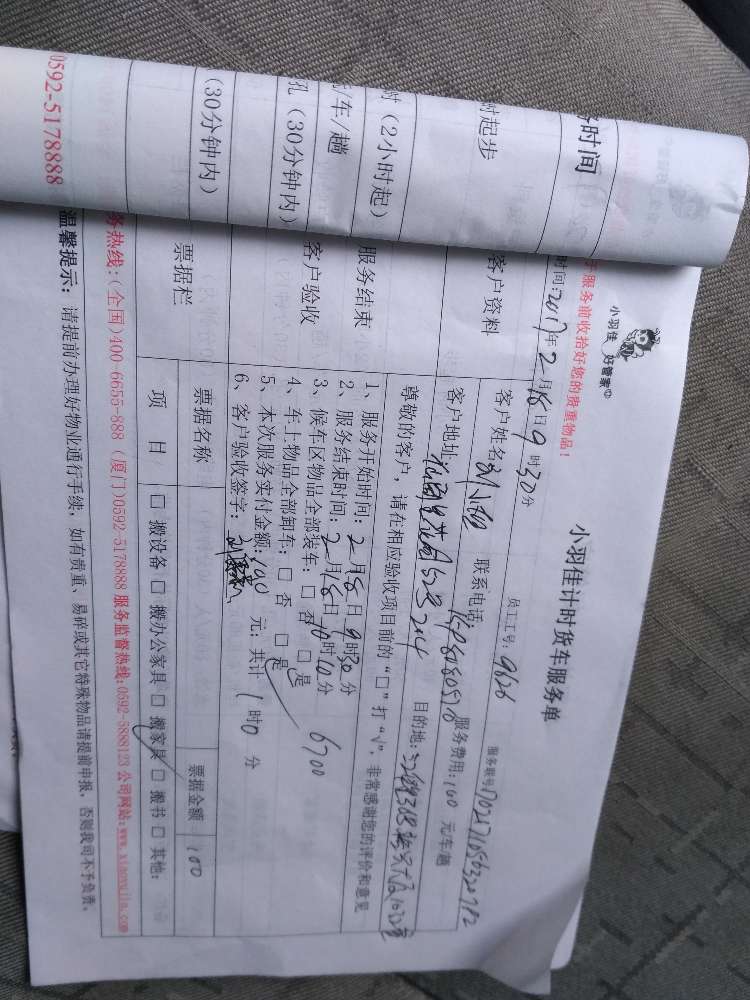 小羽佳 好管家
小羽佳计时货车服务单
服务前收拾好您的贵重物品！
员工工号：9626
时间：2017年2月18日9时30分
客户资料
客户姓名
联系电话
服务费用：160 元/车辆
客户地址
目的地：
尊敬的客户，请在相应验收项目前的“□”打“√”，非常感谢您的评价和意见
服务结束
客户验收
1、服务开始时间：2月18日9时30分
2、服务结束时间：2月18日10时10分
3、候车区物品全部装车：□ 否 □ 是
4、车上物品全部卸车：□ 否 □ 是
5、本次服务实付金额：
元；共计 1 时0 分
6、客户验收签字：
6700
票据栏
票据名称
票据金额
100
项 目
□ 搬设备 □ 搬办公家具 □ 搬家具 □ 搬书 □ 其他：
务热线：(全国)400-6655-888 (厦门)0592-5178888 服务监督热线：0592-5888123 公司网站：www.xiaoyujia.com
温馨提示：请提前办理好物业通行手续，如有贵重、易碎或其它特殊物品请提前申报，否则我司不予负责。
时间
时起步
时（2小时起）
元/车/趟
孔（30分钟内）
（30分钟内）
0592-5178888